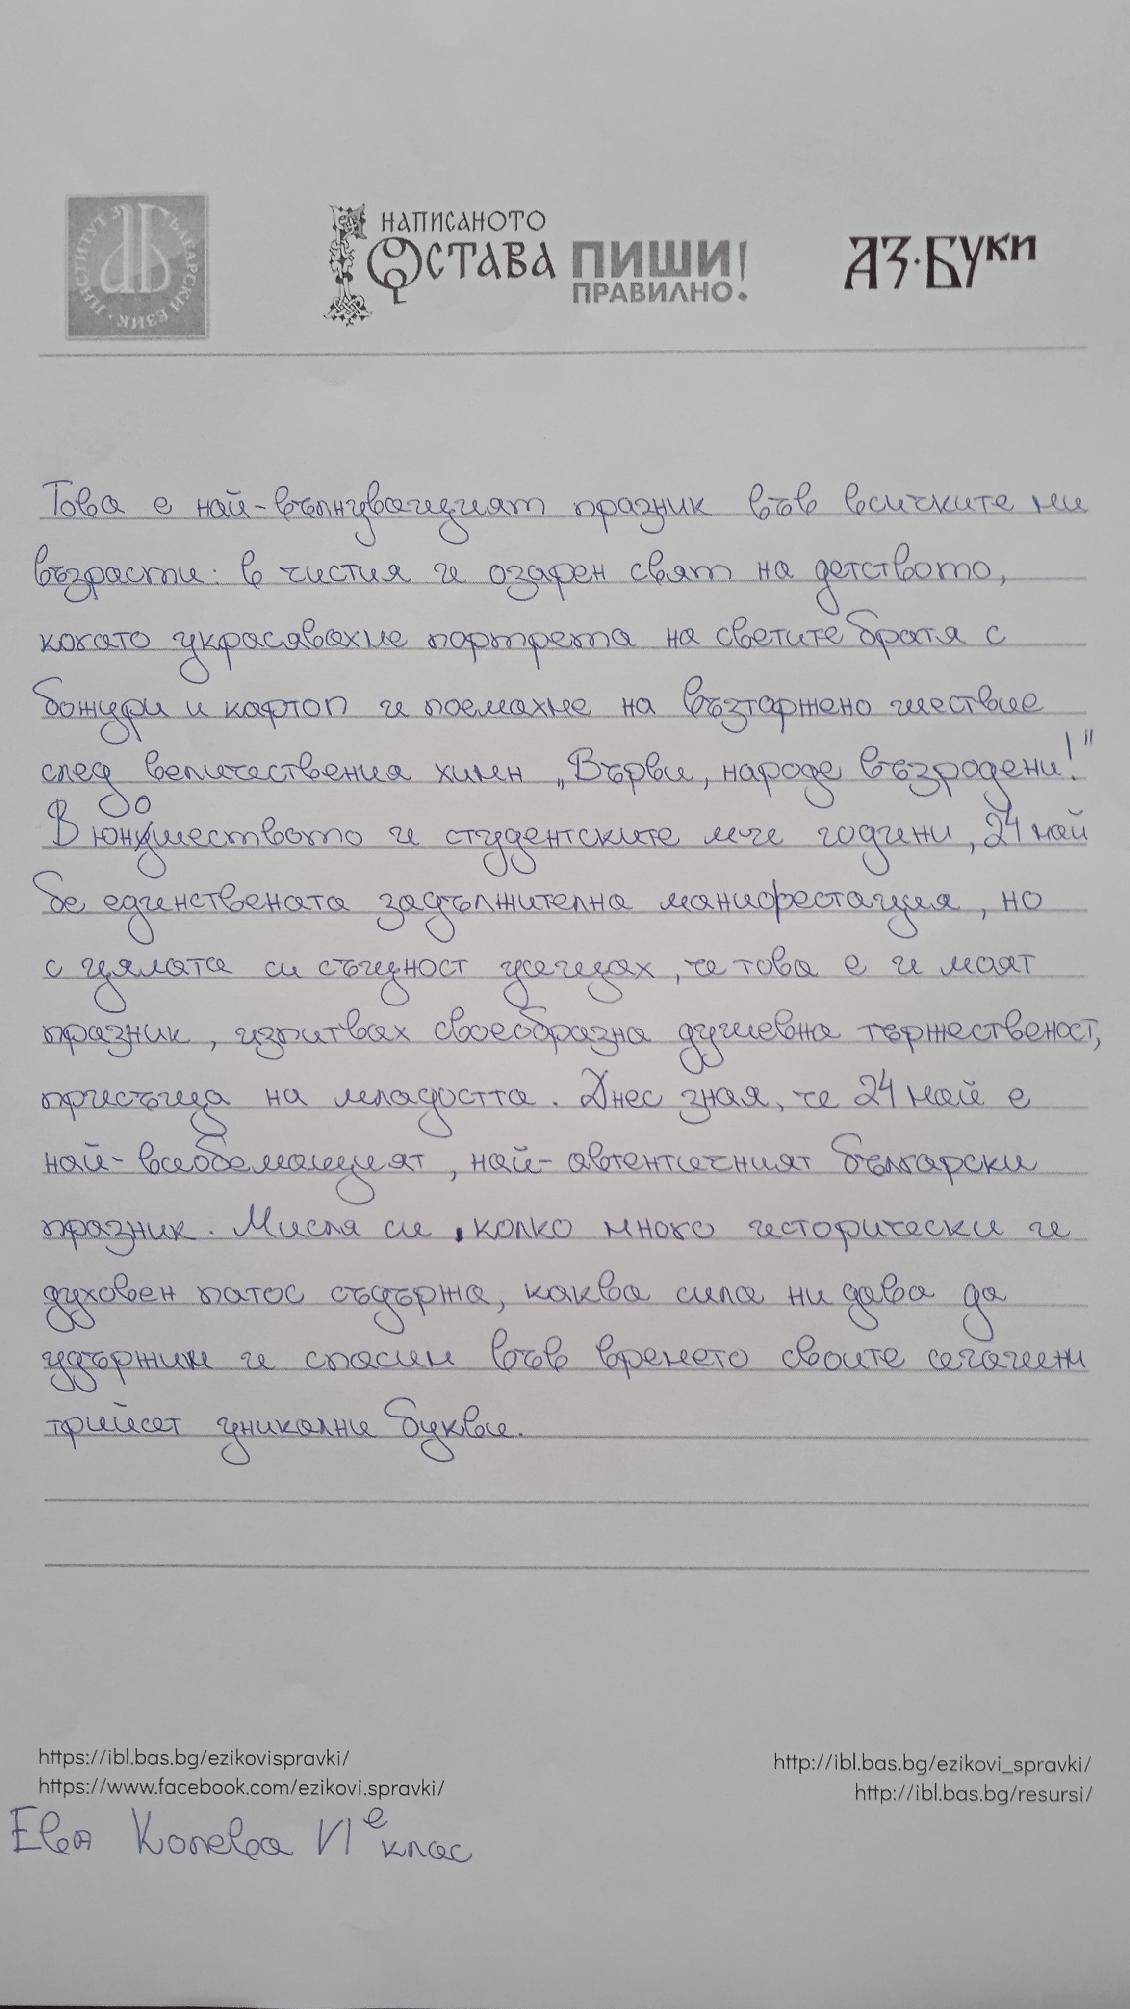 ИНСТИТУТ ЗА БЪЛГАРСКИ ЕЗИК
НАПИСАНОТО
ОСТАВА
ПИШИ!
ПРАВИЛНО.
АЗ·БУКИ
Това е най-вълнуващият празник във всичките ни
възрасти: в чистия и озарен свят на детството,
когато украсявахме портрета на светите братя с
божури и картоп и поемахме на възтържено шествие
след величествения химн „Върви, народе възродени!"
В юношеството и студентските ми години, 24 май
бе единствената задължителна манифестация, но
с цялата си същност усещах, че това е и моят
празник, изпитвах своеобразна душевна тържественост,
присъща на младостта. Днес зная, че 24 май е
най-всеобемащият, най-автентичният български
празник. Мисля си, колко много исторически и
духовен патос съдържа, каква сила ни дава да
удържим и спасим във времето своите сегашни
трийсет уникални букви.
https://ibl.bas.bg/ezikovispravki/
https://www.facebook.com/ezikovi.spravki/
http://ibl.bas.bg/ezikovi_spravki/
http://ibl.bas.bg/resursi/
Ева Колева VI е клас